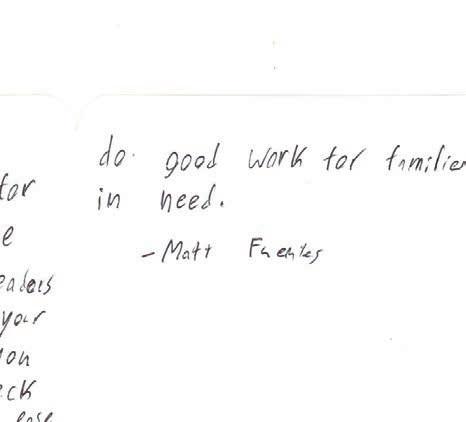 for
e
eaders
your
on
eck
ease
do good work for families
in need.
- Matt Fuentes